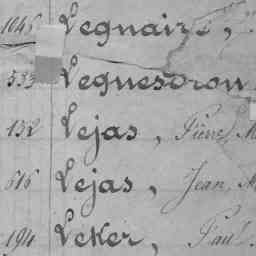 1046 Legnaire,
533 Leguesdron
152 Lejas, Pierre, M
616 Lejas, Jean, M
194 Leker, Paul